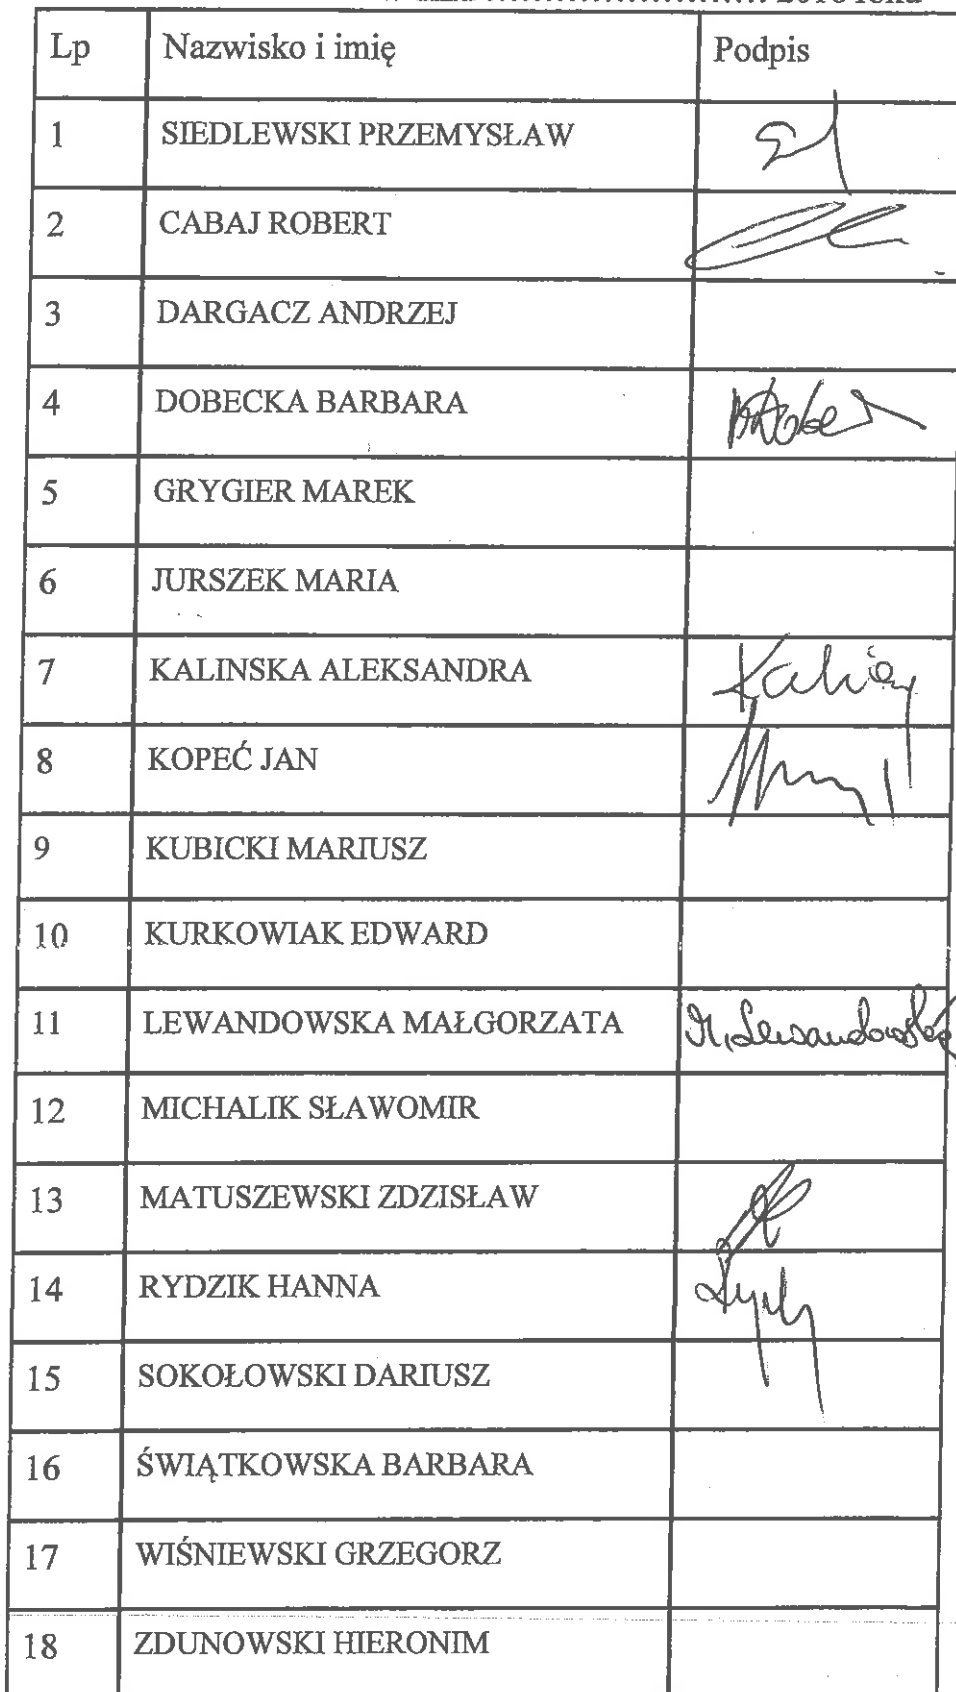 2018 roku
Lp Nazwisko i imię Podpis
1 SIEDLEWSKI PRZEMYSŁAW
2 CABAJ ROBERT
3 DARGACZ ANDRZEJ
4 DOBECKA BARBARA
5 GRYGIER MAREK
6 JURSZEK MARIA
7 KALINSKA ALEKSANDRA
8 KOPEĆ JAN
9 KUBICKI MARIUSZ
10 KURKOWIAK EDWARD
11 LEWANDOWSKA MAŁGORZATA M. Lewandowska
12 MICHALIK SŁAWOMIR
13 MATUSZEWSKI ZDZISŁAW
14 RYDZIK HANNA
15 SOKOŁOWSKI DARIUSZ
16 ŚWIĄTKOWSKA BARBARA
17 WIŚNIEWSKI GRZEGORZ
18 ZDUNOWSKI HIERONIM